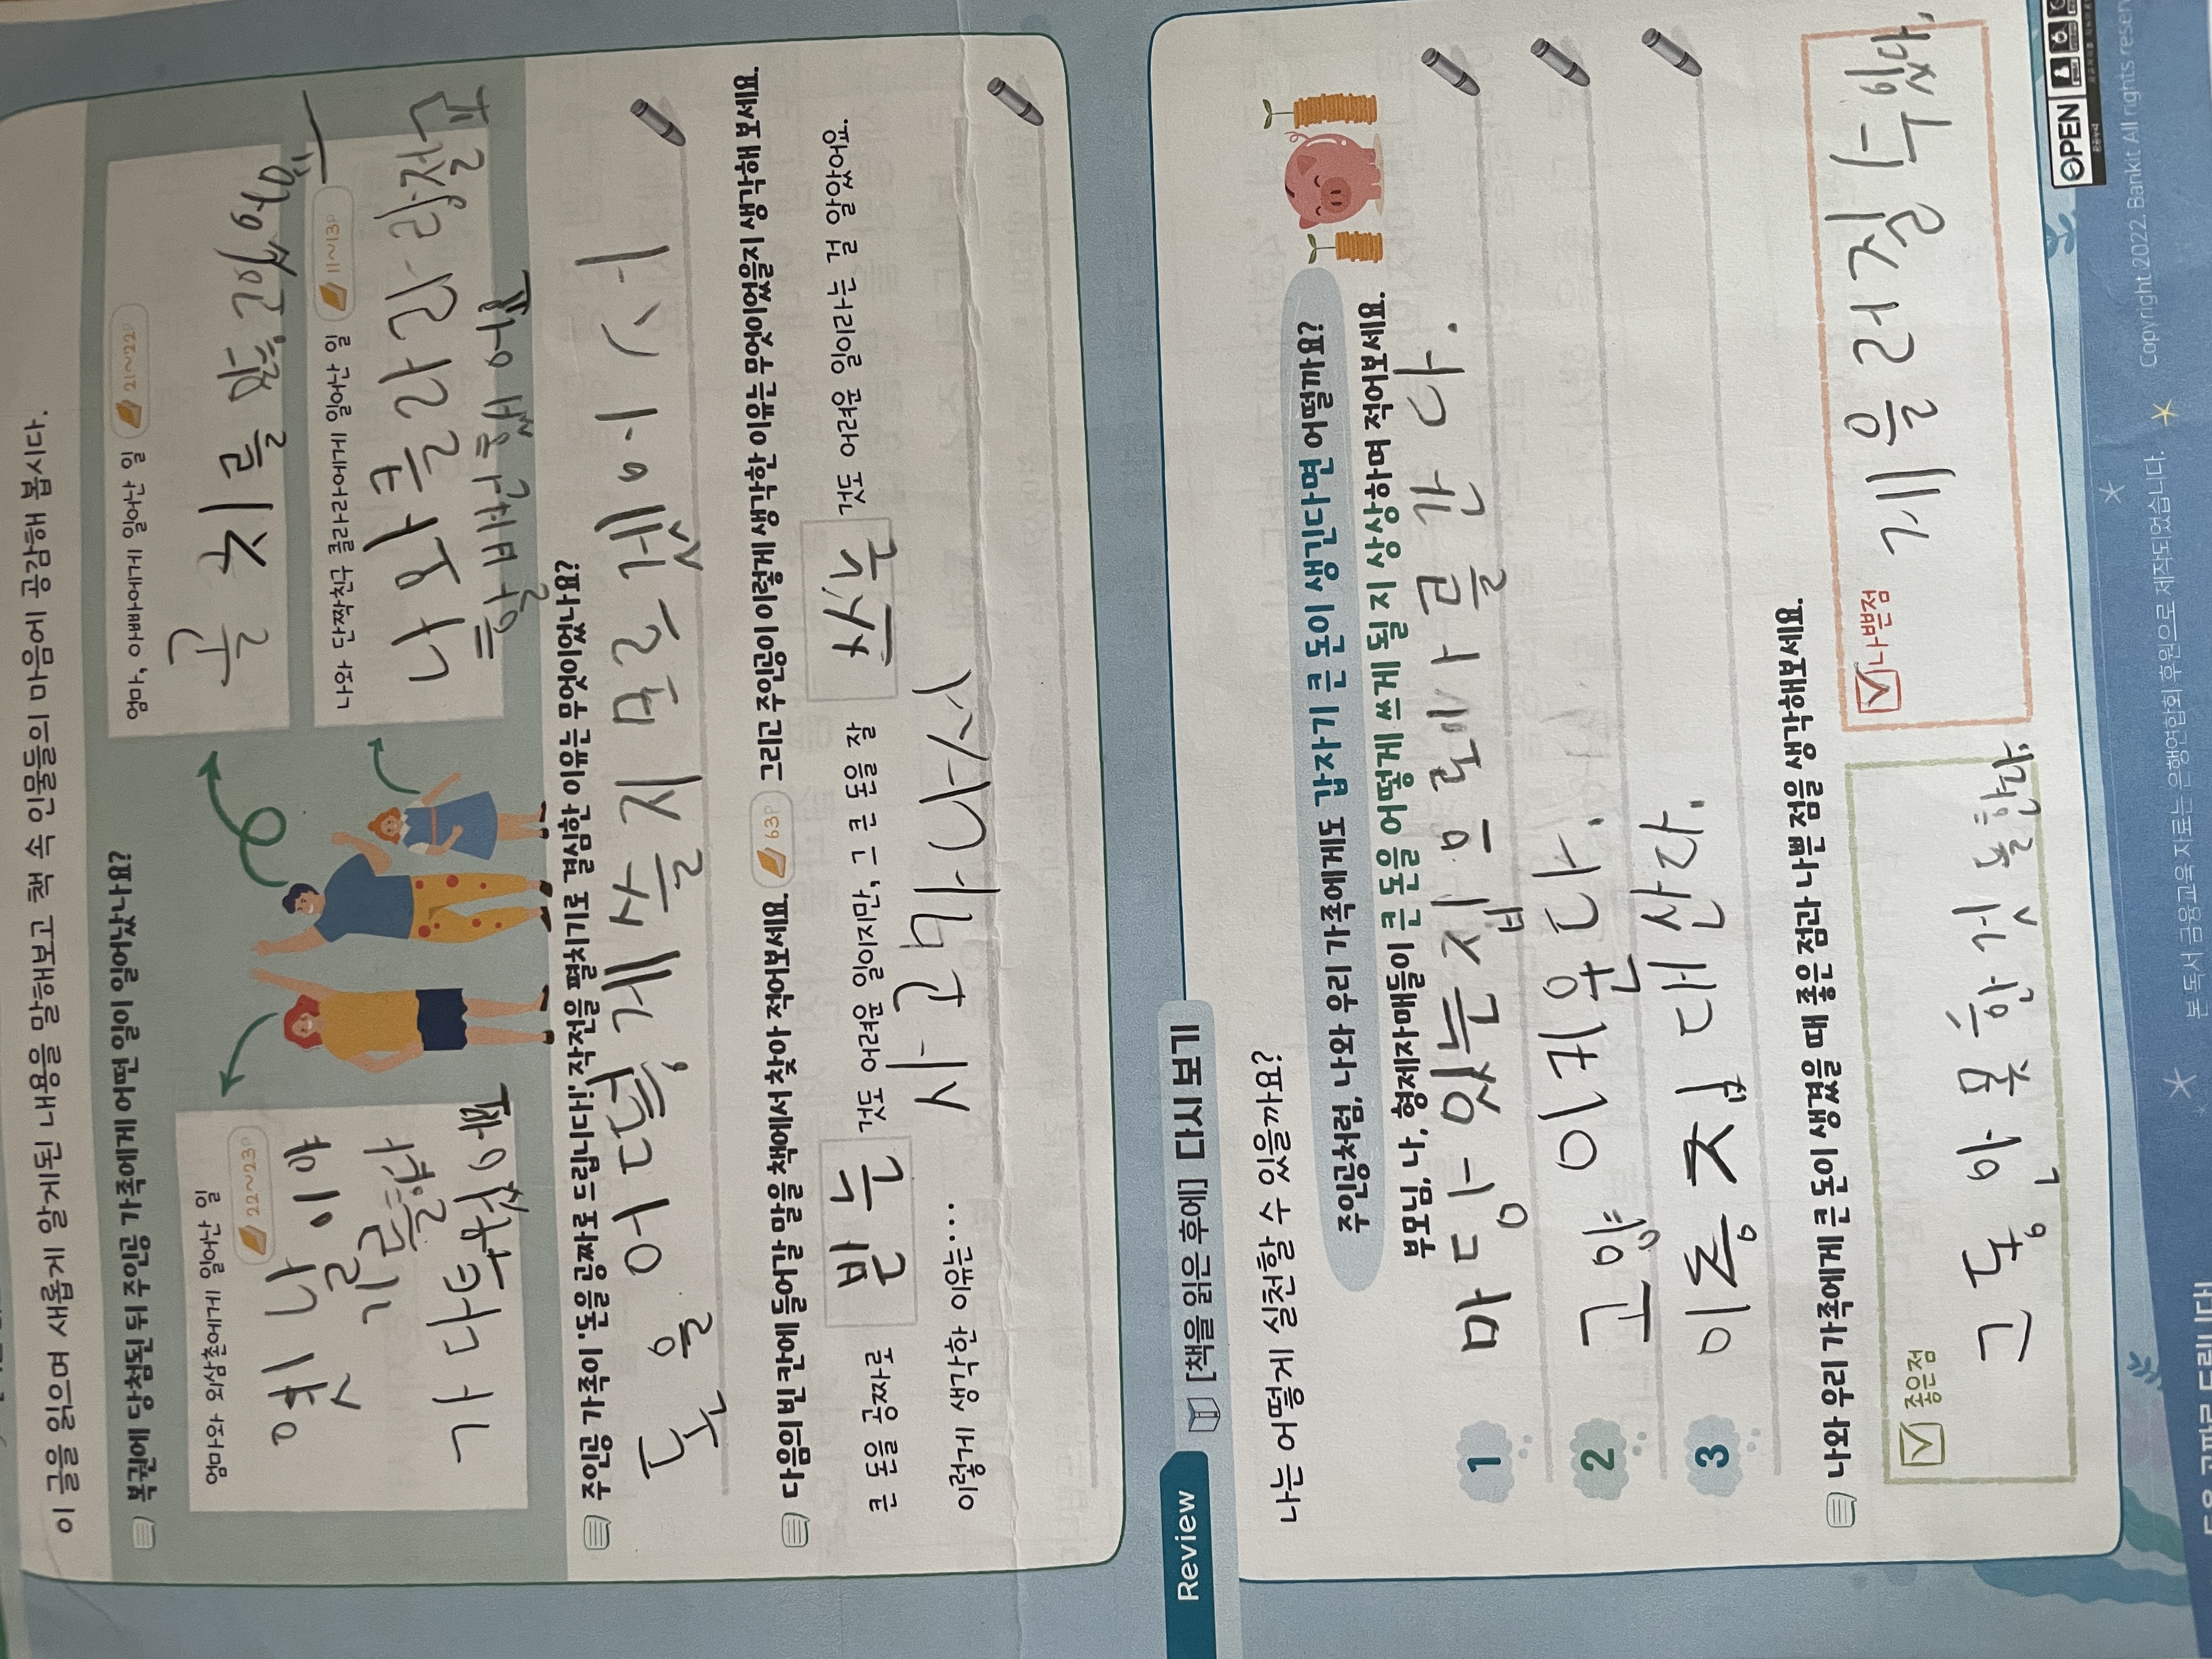 이 글을 읽으며 새롭게 알게된 내용을 말해보고 책 속 인물들의 마음에 공감해 봅시다.
복권에 당첨된 뒤 주인공 가족에게 어떤 일이 일어났나요?
엄마와 외삼촌에게 일어난 일
22~23P
기를
가 다투었어요
엄마, 아빠에게 일어난 일
21~22P
골치를
나와 단짝친구 클라라에게 일어난 일
11~13P
나와 클라라랑 절교
할 뻔 했어요
주인공 가족이 '돈을 공짜로 드립니다!' 작전을 펼치기로 결심한 이유는 무엇이었나요?
돈을 어떻게 쓸지 모르겠어서
다음의 빈 칸에 들어갈 말을 책에서 찾아 적어보세요. 63P 그리고 주인공이 이렇게 생각한 이유는 무엇이었을지 생각해 보세요.
큰 돈을 공짜로 받는 것도 어려운 일이지만, 그 큰 돈을 잘 쓰는 것도 어려운 일이라는 걸 알았어요.
이렇게 생각한 이유는....
사고가 나서
Review [책을 읽은 후에] 다시 보기
나는 어떻게 실천할 수 있을까요?
주인공처럼, 나와 우리 가족에게도 갑자기 큰 돈이 생긴다면 어떨까요?
부모님, 나, 형제자매들이 큰 돈을 어떻게 쓰게 될 지 상상하며 적어보세요.
1 마당 있는 집으로 이사를 간다.
2 고양이 키운다.
3 이층집 대 산다.
나와 우리 가족에게 큰 돈이 생겼을 때 좋은 점과 나쁜 점을 생각해보세요.
좋은점
고동안 못한것을한다
나쁜점
게을러질 수 있다.
OPEN
본 독서 금융교육 자료는 은행연합회 후원으로 제작되었습니다.
Copyright 2022. Bankit All rights reser